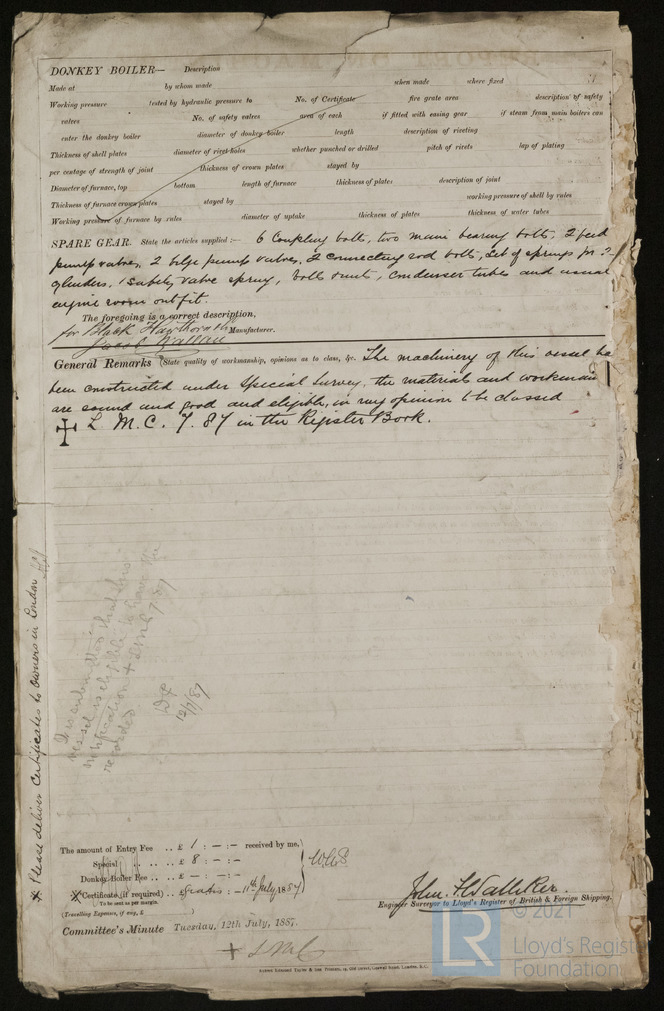 DONKEY BOILER— Description
Made at by whom made when made where fixed
Working pressure tested by hydraulic pressure to No. of Certificate fire grate area description of safety
valves No. of safety valves area of each if fitted with easing gear if steam from main boilers can
enter the donkey boiler diameter of donkey boiler length description of riveting
Thickness of shell plates diameter of rivet holes whether punched or drilled pitch of rivets lap of plating
per centage of strength of joint thickness of crown plates stayed by
Diameter of furnace, top bottom length of furnace thickness of plates description of joint
Thickness of furnace crown plates stayed by working pressure of shell by rules
Working pressure of furnace by rules diameter of uptake thickness of plates thickness of water tubes
SPARE GEAR. State the articles supplied :— 6 Coupling bolts, two main bearing bolts, 2 feed
pump valves, 2 bilge pump valves, 2 connecting rod bolts, set of springs for 2
cylinders, 1 safety valve spring, bolts nuts, condenser tubes and usual
engine room outfit.
The foregoing is a correct description,
for Black Hawthorn & Co Manufacturer.
Jacob Wallau
General Remarks (State quality of workmanship, opinions as to class, &c. The machinery of this vessel ha
been constructed under Special Survey, the materials and workman
are sound and good and eligible, in my opinion to be classed
✠ L. M. C. 7. 87 in the Register Book.
It is submitted that this
vessel is eligible to have the
notification + LMC 7/87
recorded
12/7/87
* Please deliver Certificates to owners in London
The amount of Entry Fee .. £ 1 : – : – received by me,
Special .. .. £ 8 : – : –
Donkey Boiler Fee .. £ – : – : –
* Certificate (if required) .. £ Gratis : – 11th July, 1887
To be sent as per margin.
(Travelling Expenses, if any, £ )
John H Walliker.
Engineer Surveyor to Lloyd's Register of British & Foreign Shipping.
Committee's Minute Tuesday, 12th July, 1887.
+ L M C
© 2021
LR
Lloyd's Registe
Foundation